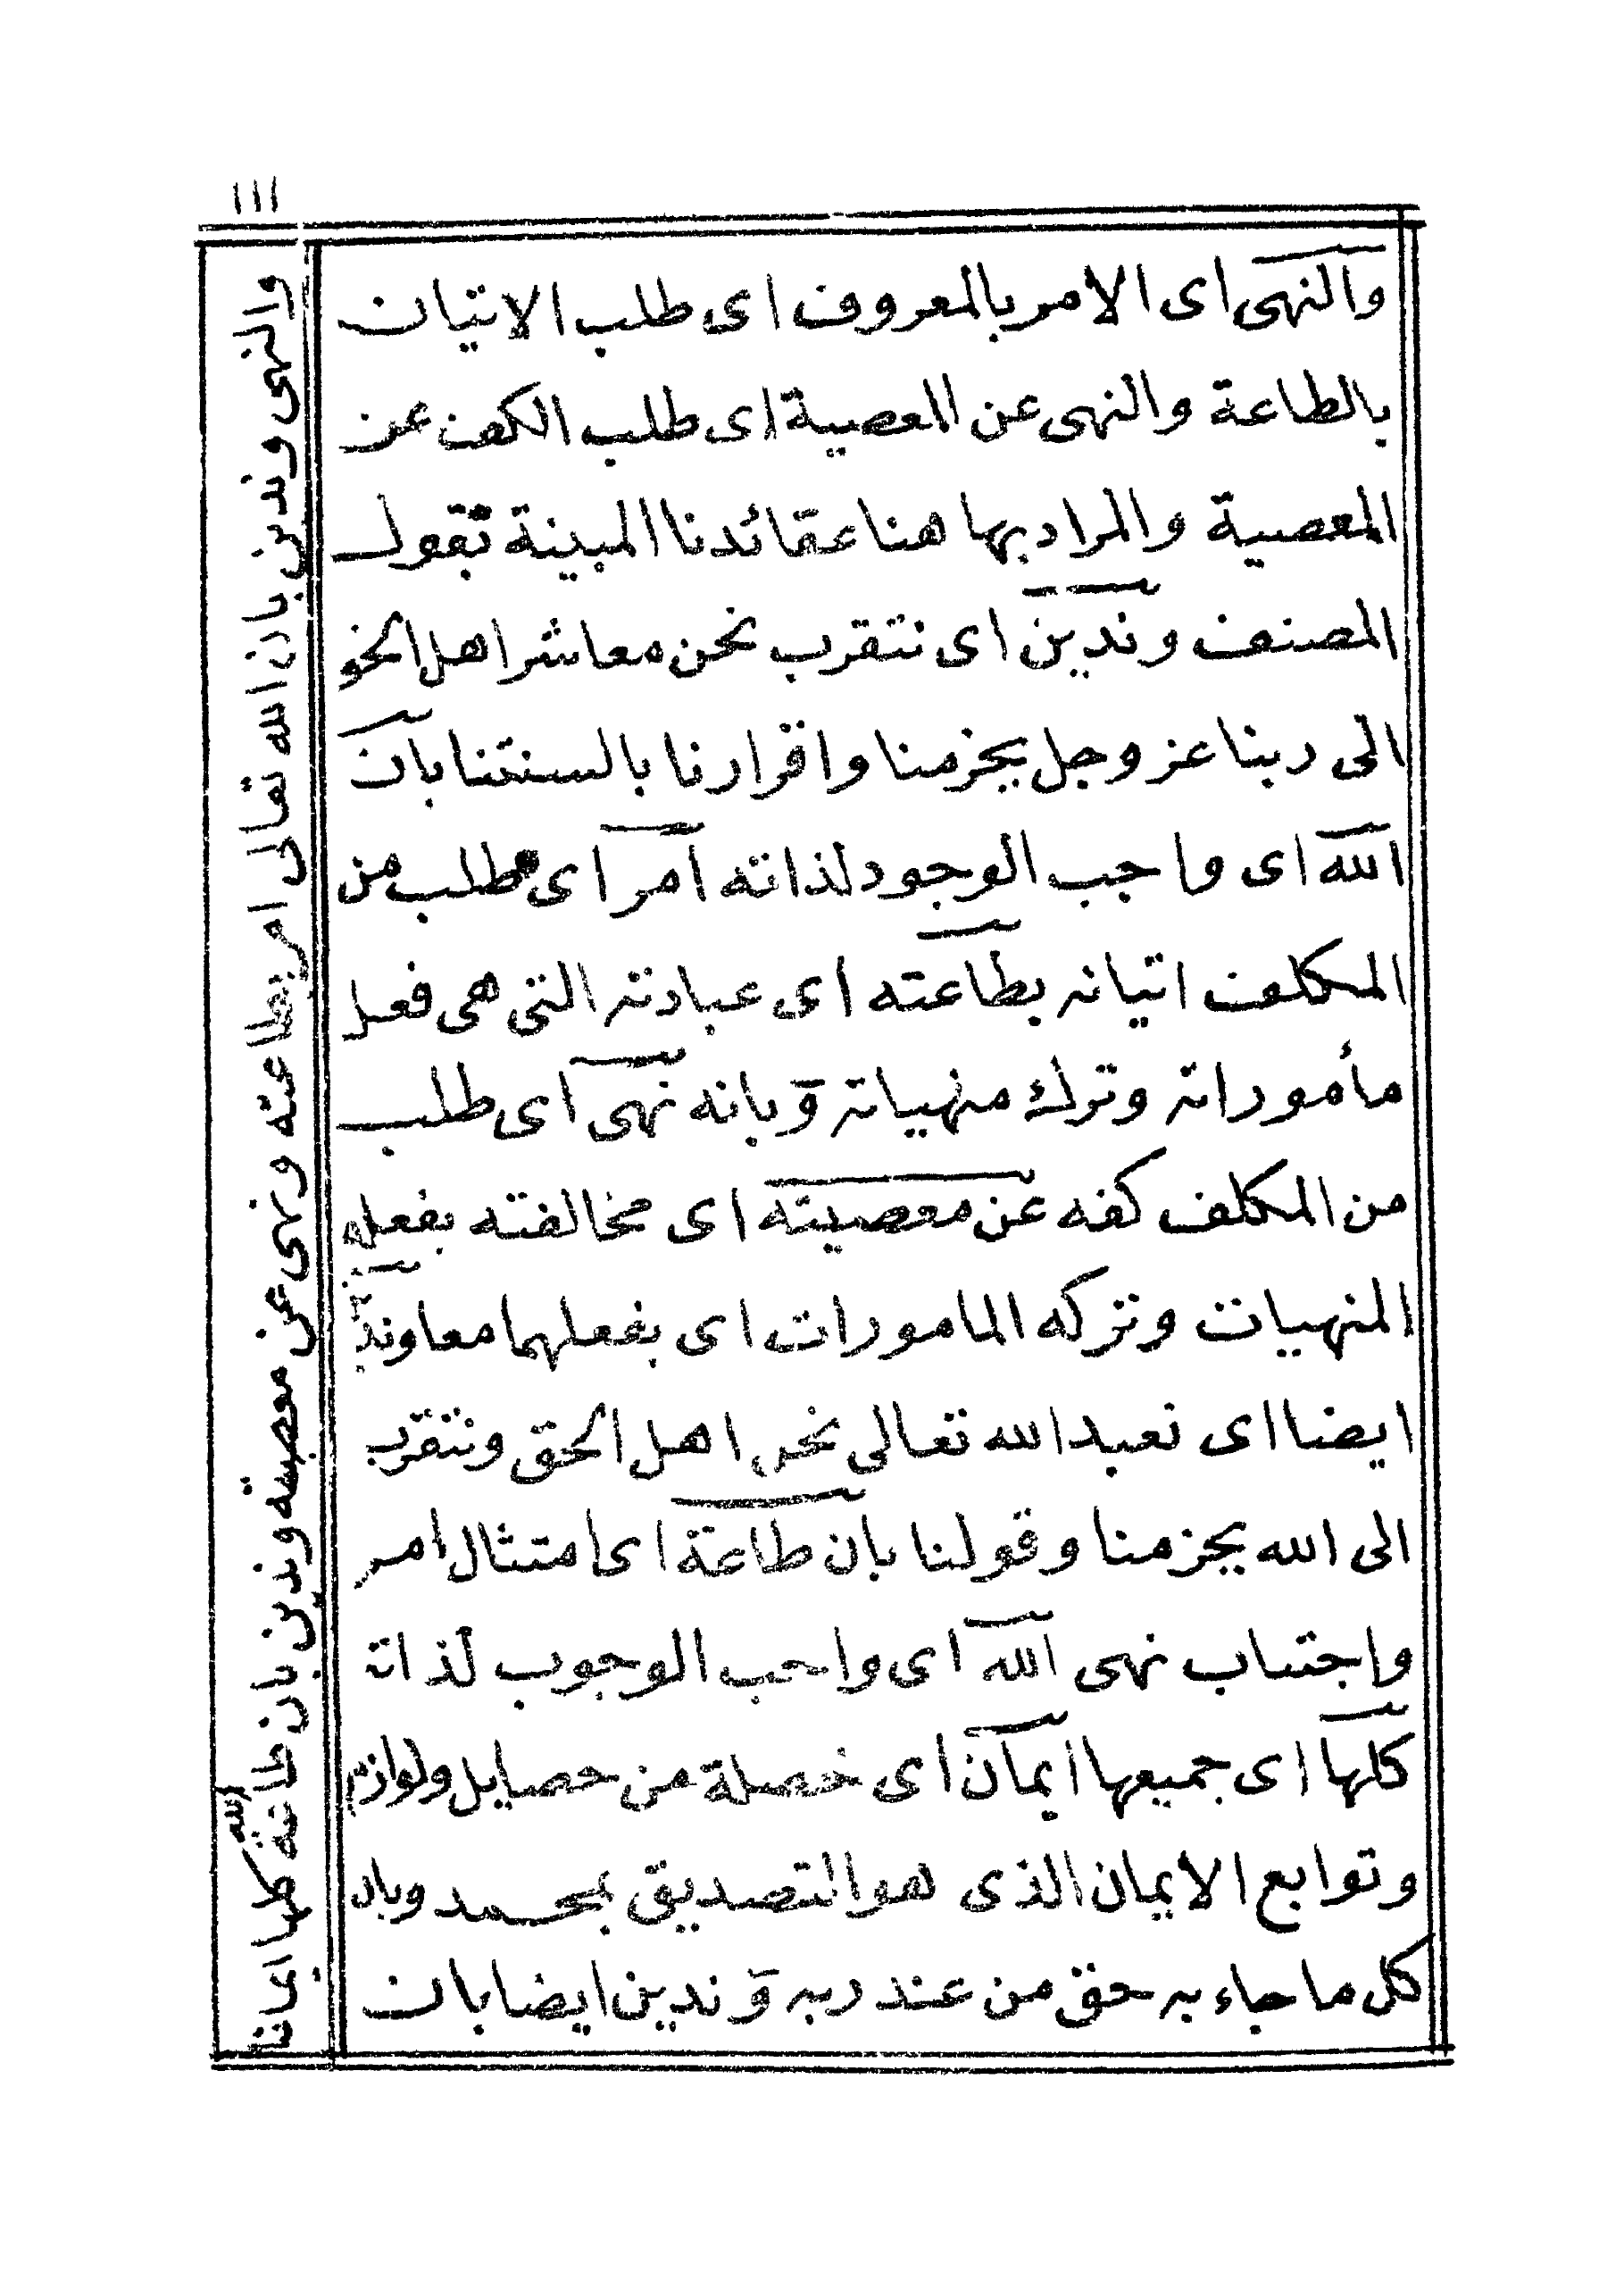 ١١١
والنهى اى الامر بالمعروف اى طلب الاتيان
بالطاعة والنهى عن المعصية اى طلب الكف عن
المعصية والمراد بها هنا عقائدنا المبينة بقول
المصنف وندين اى نتقرب نحن معاشر اهل الحق
الى ربنا عز وجل بجزمنا واقرارنا بالسنتنا بان
الله اى واجب الوجود لذاته امر اى طلب من
المكلف اتيانه بطاعته اى عبادته التى هى فعل
مأموراته وترك منهياته وبانه نهى اى طلب
من المكلف كفه عن معصيته اى مخالفته بفعله
المنهيات وتركه المامورات اى بفعلهما معا وندين
ايضا اى نعبد الله تعالى نحن اهل الحق ونتقرب
الى الله بجزمنا وقولنا بان طاعة اى امتثال امر
واجتناب نهى الله اى واجب الوجوب لذاته
كلها اى جميعها ايمان اى خصلة من خصايل ولوازم
وتوابع الايمان الذى هو التصديق بمحمد وبان
كل ما جاء به حق من عند ربه وندين ايضا بان
والنهى وندين بان الله تعالى امر بطاعته ونهى عن معصيته وندين بان طاعة الله كلها ايمان